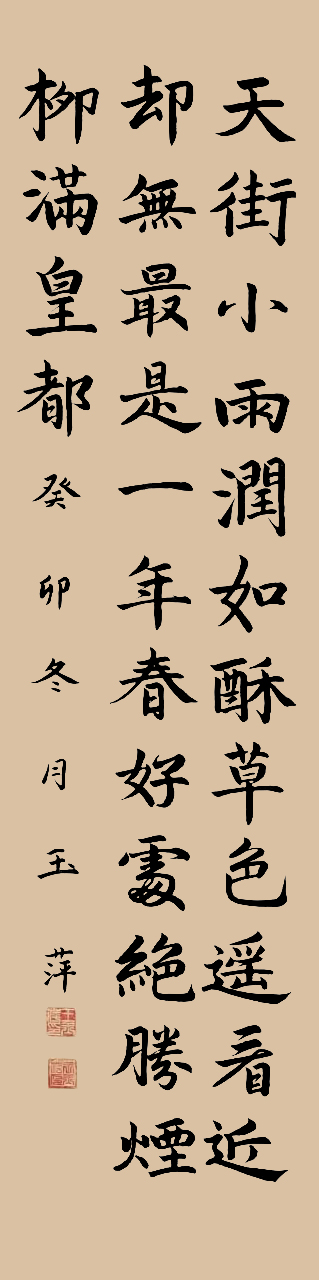 天街小雨潤如酥草色遥看近
却無最是一年春好處絕勝煙
柳滿皇都癸卯冬月玉萍